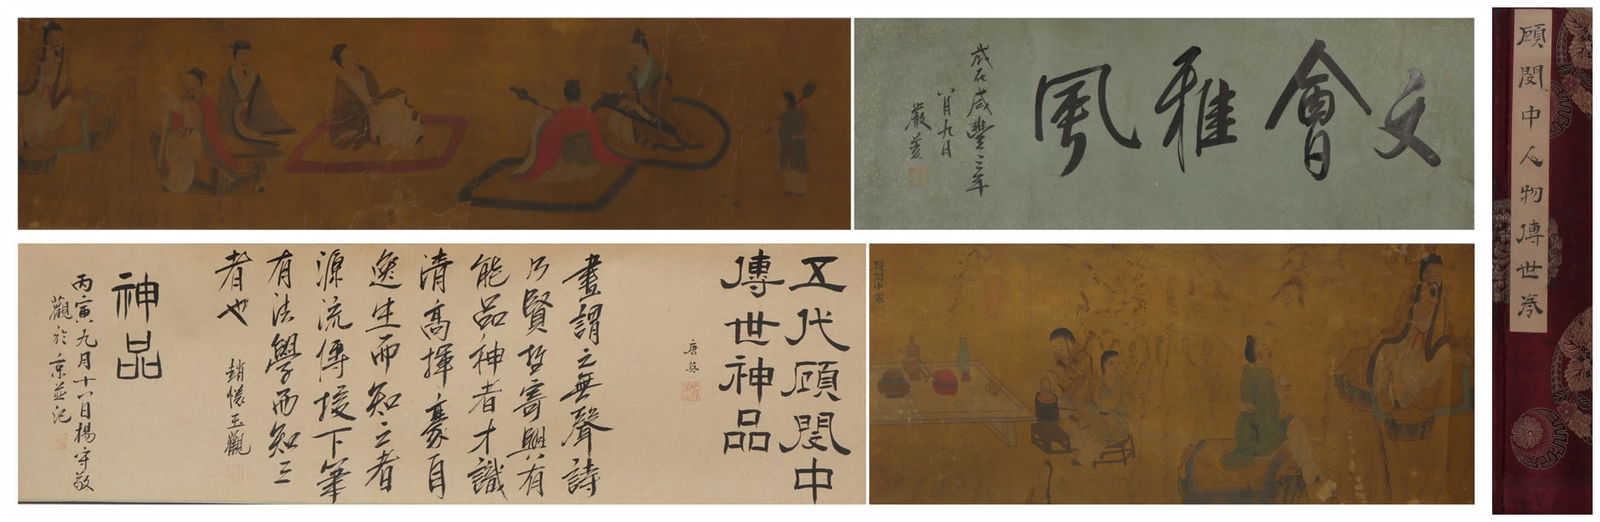 文會雅風
歲在咸豐三年
八月九日
嚴荄
顧閎中人物傳世卷
五代顧閎中
傳世神品
唐英
畫謂之無聲詩
乃賢哲寄興有
能品神者才識
清高揮豪自
逸生而知之者
源流傳授下筆
有法學而知之
者也
趙懷玉觀
神品
丙寅九月十六日楊守敬
觀於京並記
顧閎中製